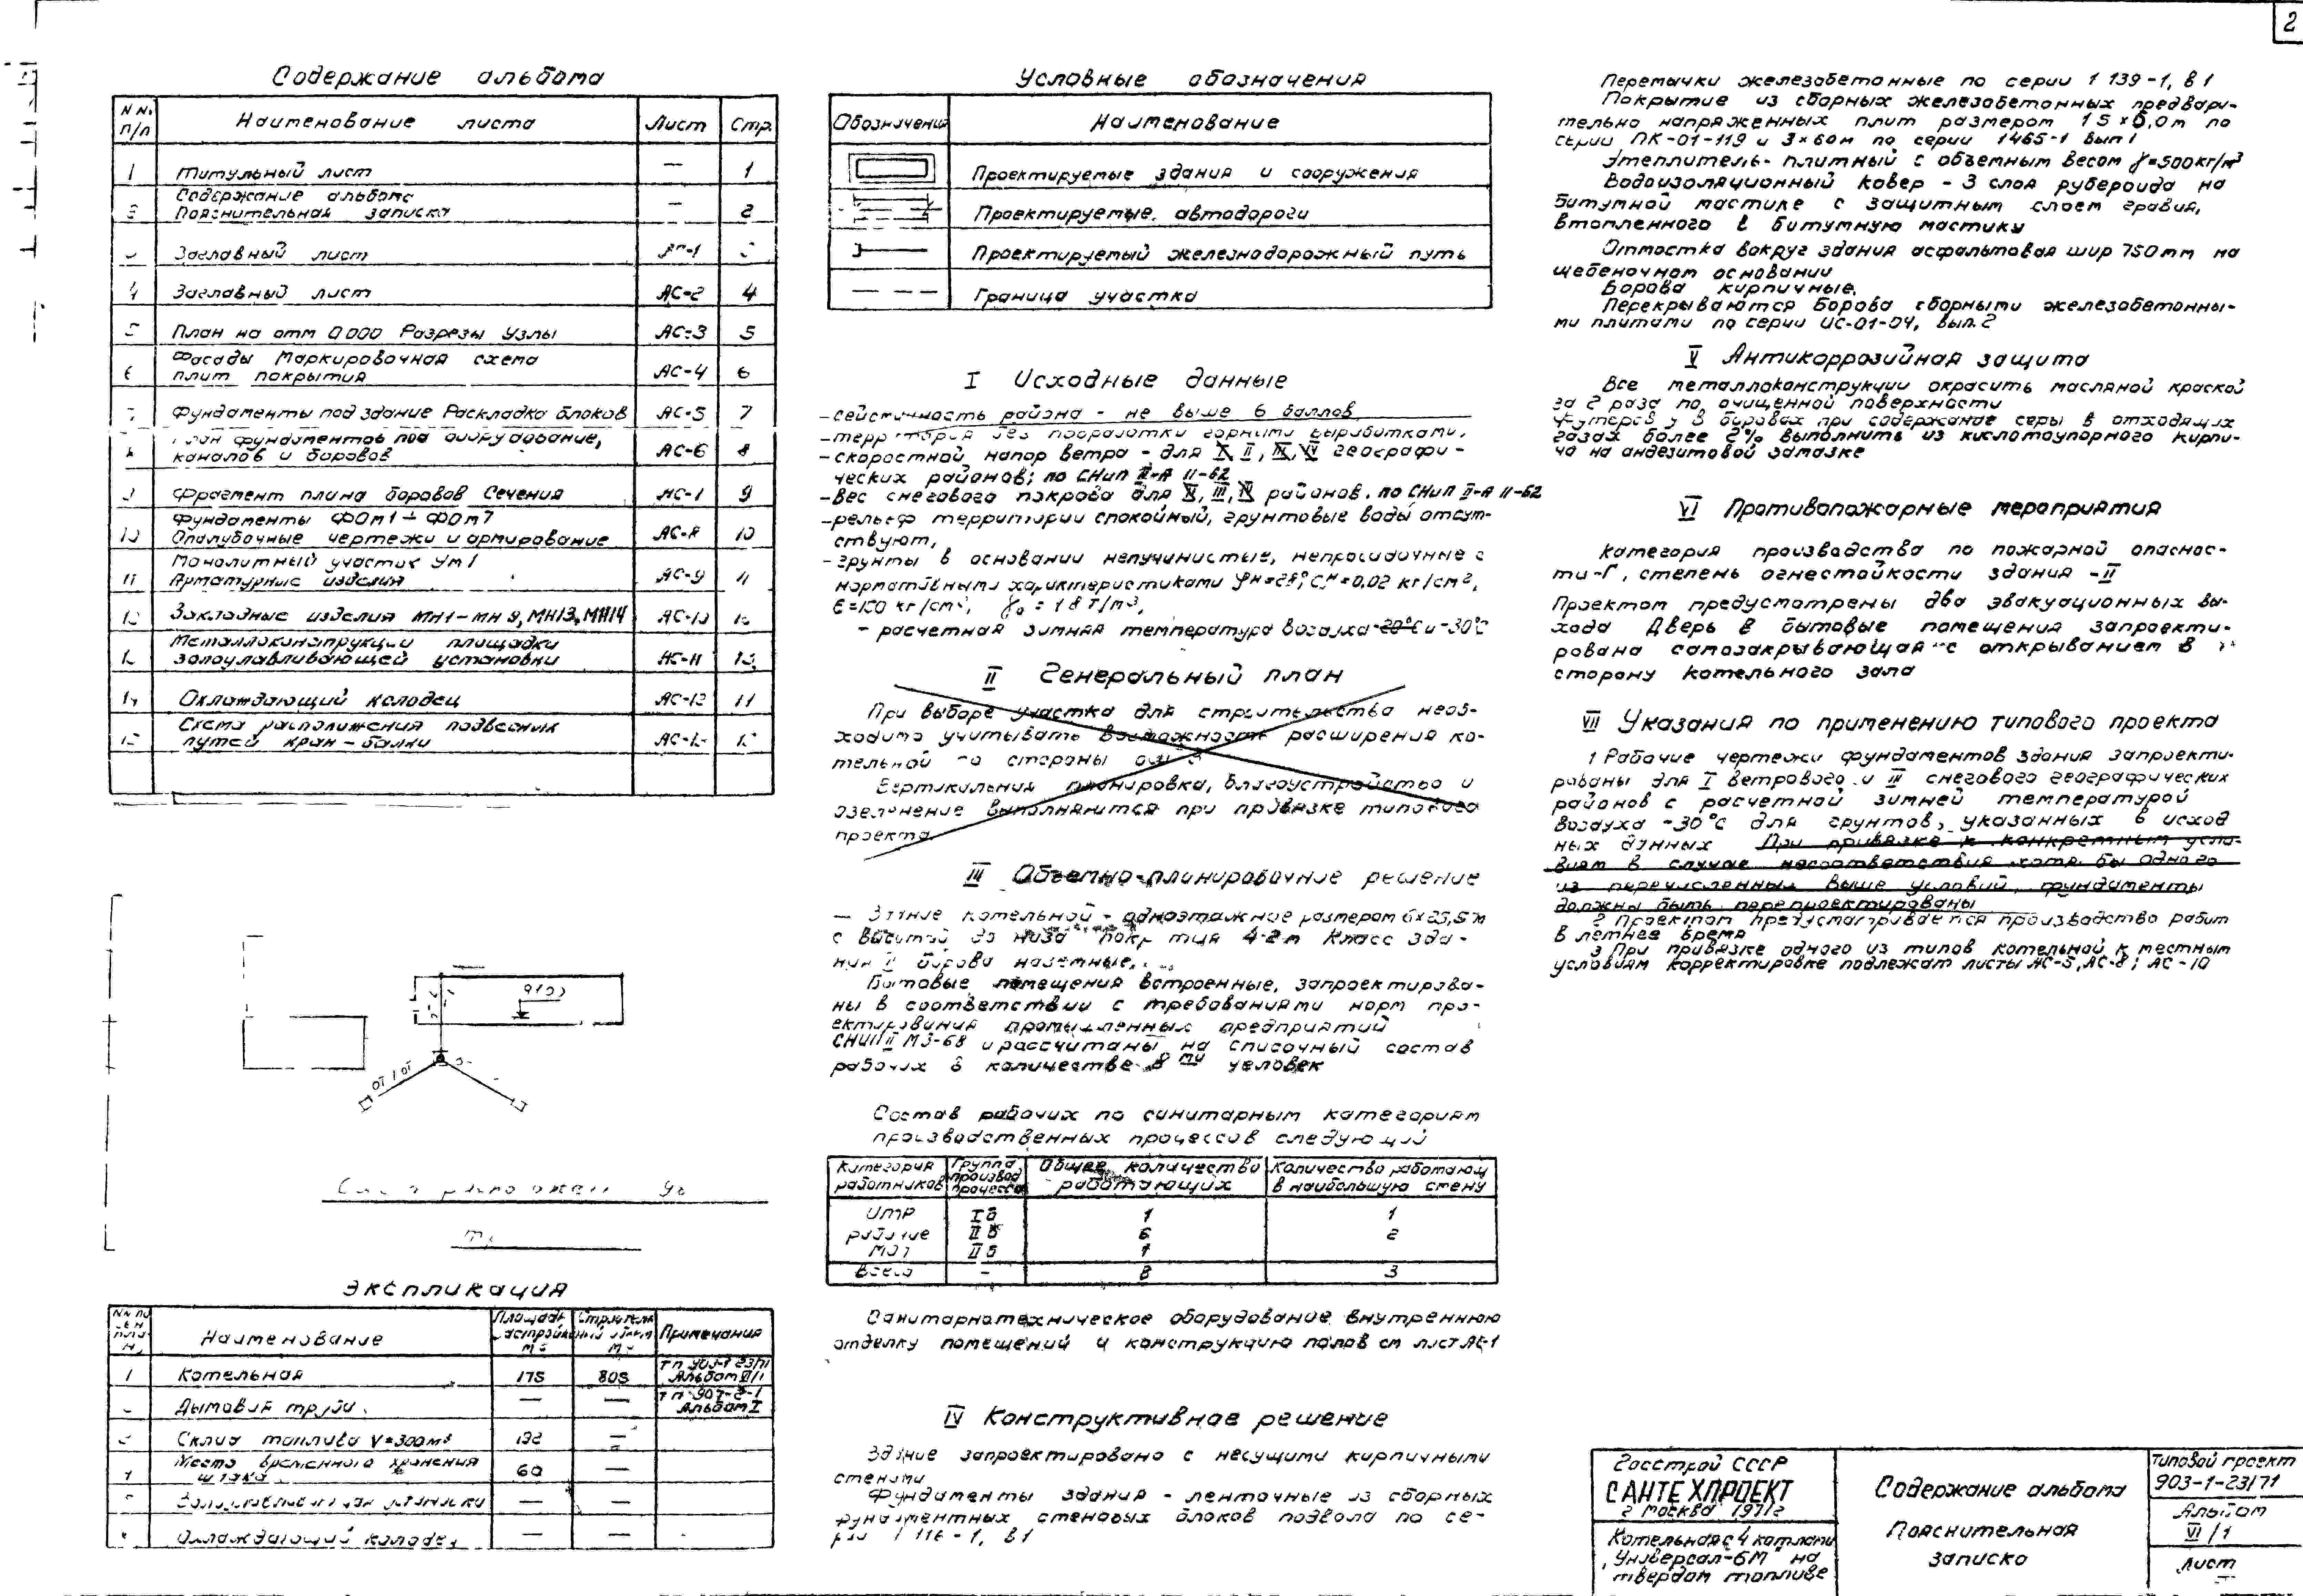 2
Содержание альбома
N N: п/п Наименование листа Лист Стр.
1 Титульный лист — 1
Содержание альбома
Пояснительная записка — 2
Заглавный лист
4 Заглавный лист АС-2 4
5 План на отм 0 000 Разрезы Узлы АС-3 5
Фасады Маркировочная схема
6 плит покрытия АС-4 6
7 Фундаменты под здание Раскладка блоков АС-5 7
фундаментов под оборудование,
каналов и боровов АС-6 8
Фрагмент плана боровов Сечения 9
Фундаменты ФОм1 ÷ ФОм7
10 Опалубочные чертежи и армирование АС-8 10
Монолитный участок Ум1
11 Арматурные изделия АС-9 11
Закладные изделия МН1-МН 9, МН13, МН14 АС-10
Металлоконструкции площадки
золоулавливающей установки АС-11
Охлаждающий колодец АС-12
Схема расположения подвесных
путей кран-балки
Экспликация
Наименование Площадь застройки м2 Строительный объем Примечания
1 Котельная 175 805 Альбом
Дымовая труба — — Т п 907-2-1 Альбом I
Склад топлива V=300м3 192 —
Место временного хранения
шлака 60 —
— —
Охлаждающий колодец — —
Условные обозначения
Обозначения Наименование
Проектируемые здания и сооружения
Проектируемые автодороги
Проектируемый железнодорожный путь
Граница участка
I Исходные данные
- сейсмичность района - не выше 6 баллов
- территория без подработки горными выработками.
- скоростной напор ветра - для I, II, III, IV географи-
ческих районов; по СНиП II-А 11-62
- Вес снегового покрова для III, районов. по СНиП II-А 11-62
- рельеф территории спокойный, грунтовые воды отсут-
ствуют,
- грунты в основании непучинистые, непросадочные с
нормативными характеристиками φн=28°, Cн=0,02 кг/см2,
E=150 кг/см2, γо = 1 8 т/м3,
- расчетная зимняя температура воздуха -20°С и -30°С
II Генеральный план
При выборе участка для строительства необ-
ходимо учитывать возможность расширения ко-
тельной со стороны
Вертикальная планировка, благоустройство и
озеленение выполняются при привязке типового
проекта.
III Объемно-планировочные решение
— Здание котельной - одноэтажное размером 6х25,5 м
с высотой до низа покрытия 4.2 м Класс зда-
ния II борова наземные.
Бытовые помещения встроенные, запроектирова-
ны в соответствии с требованиями норм про-
ектирования промышленных предприятий
СНиП II М 3-68 и рассчитаны на списочный состав
рабочих в количестве 8 ми человек
Состав рабочих по санитарным категориям
производственных процессов следующий
Категория работников Группа производ процесса Общее количество работающих Количество работающ в наибольшую смену
ИТР Iб 1 1
рабочие IIб 6 2
МОП IIб 1
Всего - 8 3
Санитарнотехническое оборудование внутреннюю
отделку помещений и конструкцию полов см лист АС-1
IV Конструктивное решение
Здание запроектировано с несущими кирпичными
стенами
Фундаменты здания - ленточные из сборных
фундаментных стеновых блоков подвала по се-
рии 1 116-1, в1
Перемычки железобетонные по серии 1 139-1, в 1
Покрытие из сборных железобетонных предвари-
тельно напряженных плит размером 1 5 х 6,0 м по
серии ПК-01-119 и 3×6 0 м по серии 1 465-1 вып 1
Утеплитель- плитный с объемным весом γ=500 кг/м3
Водоизоляционный ковер - 3 слоя рубероида на
битумной мастике с защитным слоем гравия,
втопленного в битумную мастику
Отмостка вокруг здания асфальтовая шир 750 мм на
щебеночном основании
Борова кирпичные.
Перекрываются борова сборными железобетонны-
ми плитами по серии ИС-01-04, вып. 2
V Антикоррозийная защита
Все металлоконструкции окрасить масляной краской
за 2 раза по очищенной поверхности
Футеровку в боровах при содержание серы в отходящих
газах более 2% выполнить из кислотоупорного кирпи-
ча на андезитовой замазке
VI Противопожарные мероприятия
Категория производства по пожарной опаснос-
ти-Г, степень огнестойкости здания - II
Проектом предусмотрены два эвакуационных вы-
хода Дверь в бытовые помещения запроекти-
рована самозакрывающая с открыванием в
сторону котельного зала
VII Указания по применению типового проекта
1 Рабочие чертежи фундаментов здания запроекти-
рованы для I ветрового и III снегового географических
районов с расчетной зимней температурой
воздуха -30°С для грунтов, указанных в исход
ных данных При привязке к конкретным усло-
виям в случае несоответствия хотя бы одного
из перечисленных выше условий, фундаменты
должны быть перепроектированы
2 Проектом предусматривается производство работ
в летнее время
3 При привязке одного из типов котельной к местным
условиям корректировке подлежат листы АС-5, АС-8; АС-10
Госстрой СССР
САНТЕХПРОЕКТ
г Москва 1971г
Котельная с 4 котлами
„Универсал-6М" на
твердом топливе
Содержание альбома
Пояснительная
записка
Типовой проект
903-1-23/71
Альбом
VI/1
Лист